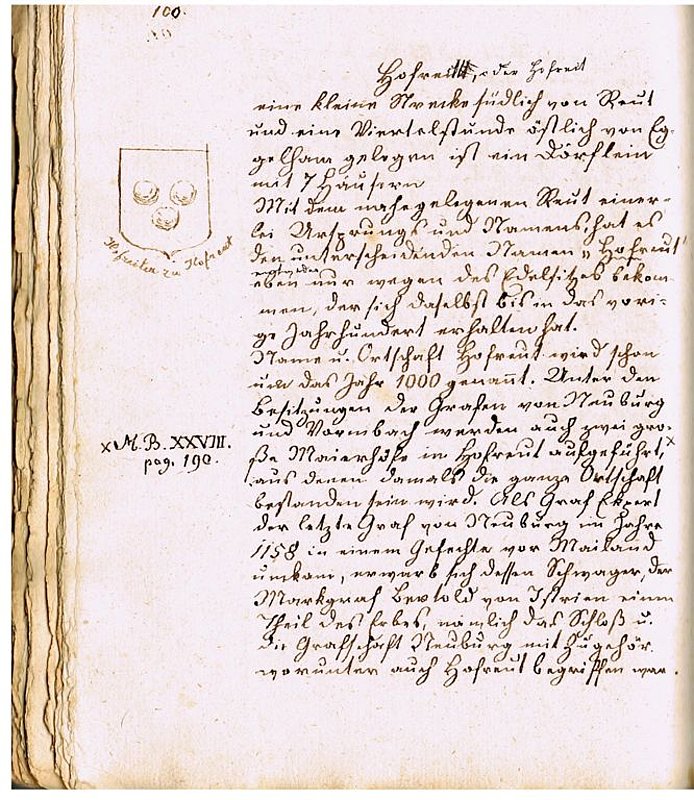 100.
Hofreitt, oder Hofreit
eine kleine Strecke südlich von Reut
und eine Viertelstunde östlich von Eg-
gelham gelegen ist ein Dörflein
mit 7 Häusern
Mit dem nahegelegenen Reut einer-
lei Ursprungs und Namens, hat es
den unterscheidenden Namen „Hofreut"
eben nur wegen des Edelsitzes bekom-
men, der sich daselbst bis in das vori-
ge Jahrhundert erhalten hat.
Name u. Ortschaft Hofreut wird schon
um das Jahr 1000 genannt. Unter den
Besitzungen der Grafen von Neuburg
und Vormbach werden auch zwei gro-
ße Maierhöfe in Hofreut aufgeführt,x
aus denen damals die ganze Ortschaft
bestanden sein wird. Als Graf Ekbert
der letzte Graf von Neuburg im Jahre
1158 in einem Gefechte vor Mailand
umkam, erwarb sich dessen Schwager, der
Markgraf Bertold von Istrien einen
Theil des Erbes, nämlich das Schloß u.
die Grafschaft Neuburg mit Zugehör.
worunter auch Hofreut begriffen war.
Hofreiter zu Hofreut
x M. B. XXVIII.
pag. 190.